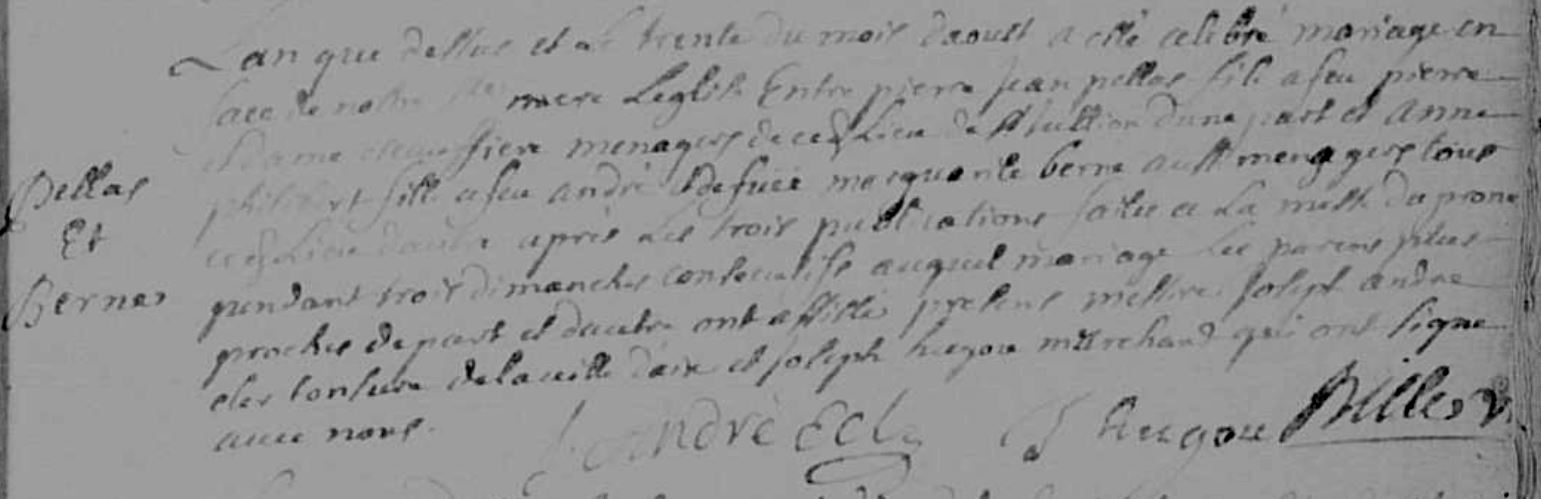 Lan que dessus et le trente du mois daoust a esté celebré mariage en
face de nostre mere Leglise Entre pierre jean pellas fils a feu pierre
et dame fiere menagers de ced. Lieu dune part et anne
fille a feu andré et de fuee marguerite berne aussi menagers tous
ced. Lieu dautre apres Les trois publications faites a La messe du prone
Pellas
Et
Bernes
pendant trois dimanches consecutifs auquel mariage Les parens plus
proches de part et dautre ont assisté presens messire Joseph andre
cler tonsure de la ville daix et joseph hugou marchand qui ont signe
avec nous.
andrè Ecl. J hugou